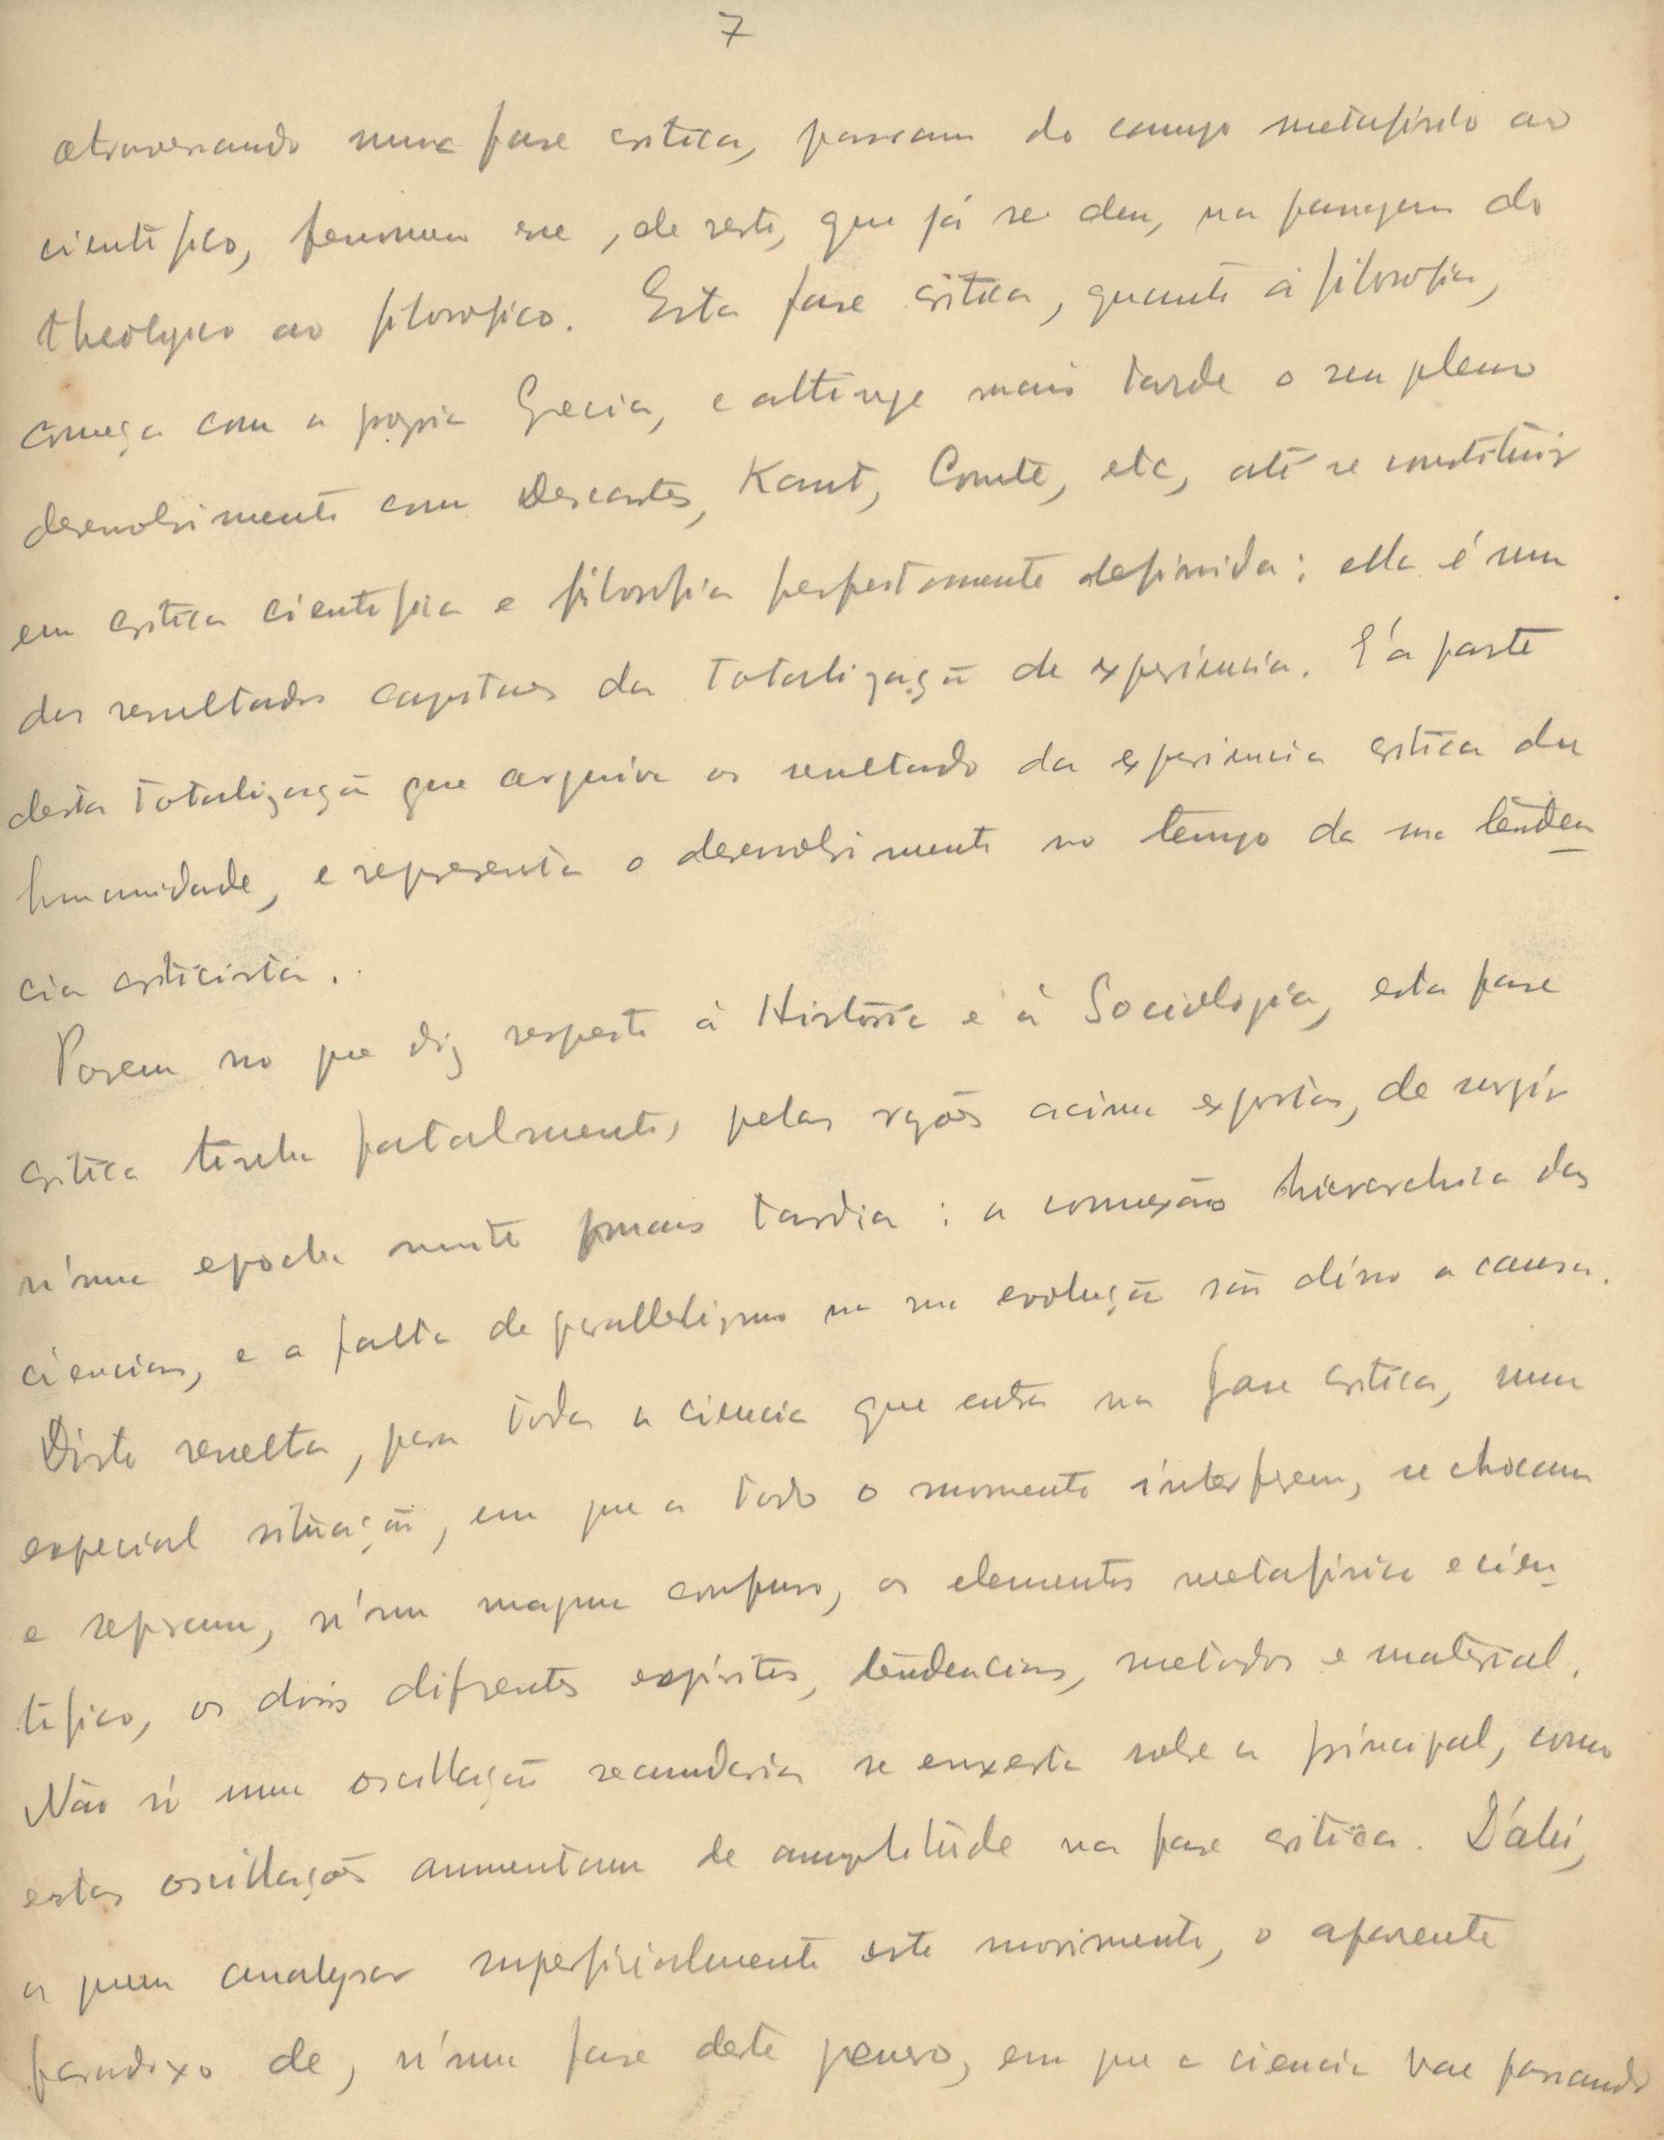 7
atravessando numa fase critica, passam do campo metafisico ao
cientifico, fenomeno esse, de resto, que já se deu, na passagem do
theologico ao filosofico. Esta fase critica, quanto á filosofia,
começa com a propria Grecia, e attinge mais tarde o seu pleno
desenvolvimento com Descartes, Kant, Comte, etc, até se constituir
em critica cientifica e filosofia perfeitamente definida: ella é um
dos resultados capitaes da totalização de experiencia. E' a parte
desta totalização que arquiva os resultados da experiencia critica da
humanidade, e representa o desenvolvimento no tempo da sua tenden
cia criticista.
Porem no que diz respeito á Historia e á Sociologia, esta fase
critica tinha fatalmente, pelas rações acima expostas, de surgir
n'uma epocha muito mais tardia: a connexão hierarchica das
ciencias, e a falta de parallelismo na sua evolução são disso a causa.
Disto resulta, para toda a ciencia que entra na fase critica, uma
especial situação, em que a todo o momento interferem, se chocam
e separam, n'um magma confuso, os elementos metafisico e cien_
tifico, os dois diferentes espiritos, tendencias, metodos e material.
Não só uma oscillação secundaria se enxerta sobre a principal, como
estas oscillações aumentam de amplitude na fase critica. D'ahi,
a quem analysar superficialmente este movimento, o aparente
paradoxo de, n'uma fase deste genero, em que a ciencia vae passando